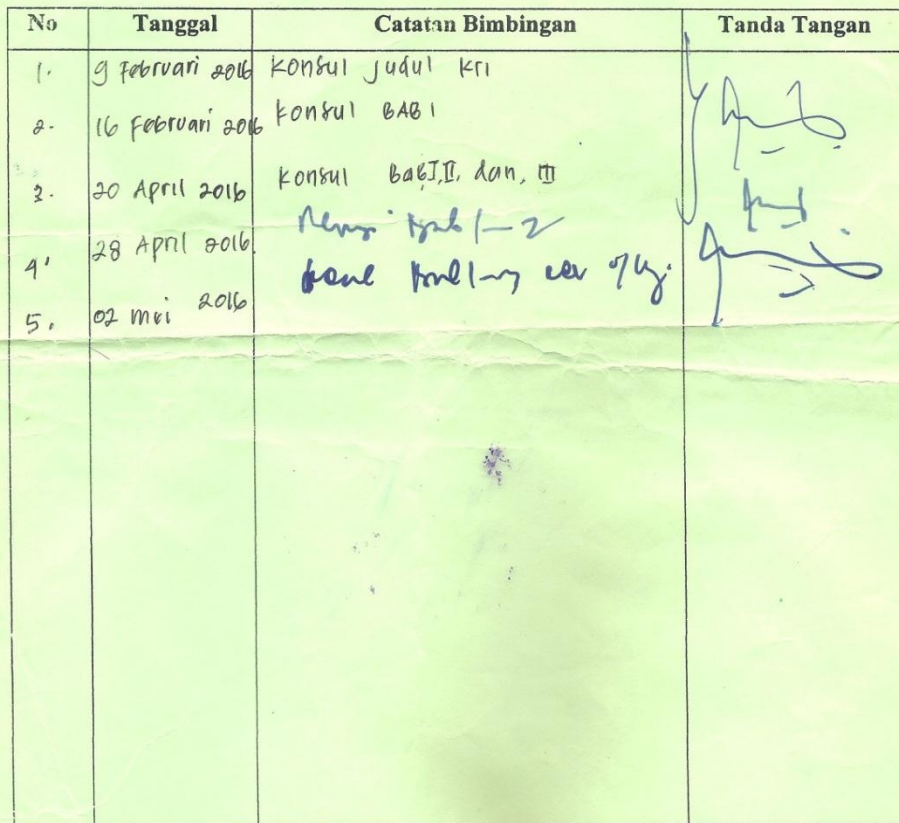 No Tanggal Catatan Bimbingan Tanda Tangan
1. 9 Februari 2016 Konsul Judul KTI
2. 16 Februari 2016 Konsul BAB 1
3. 20 April 2016 Konsul Bab I, II, dan, III
4. 28 April 2016 1-2
5. 02 mei 2016